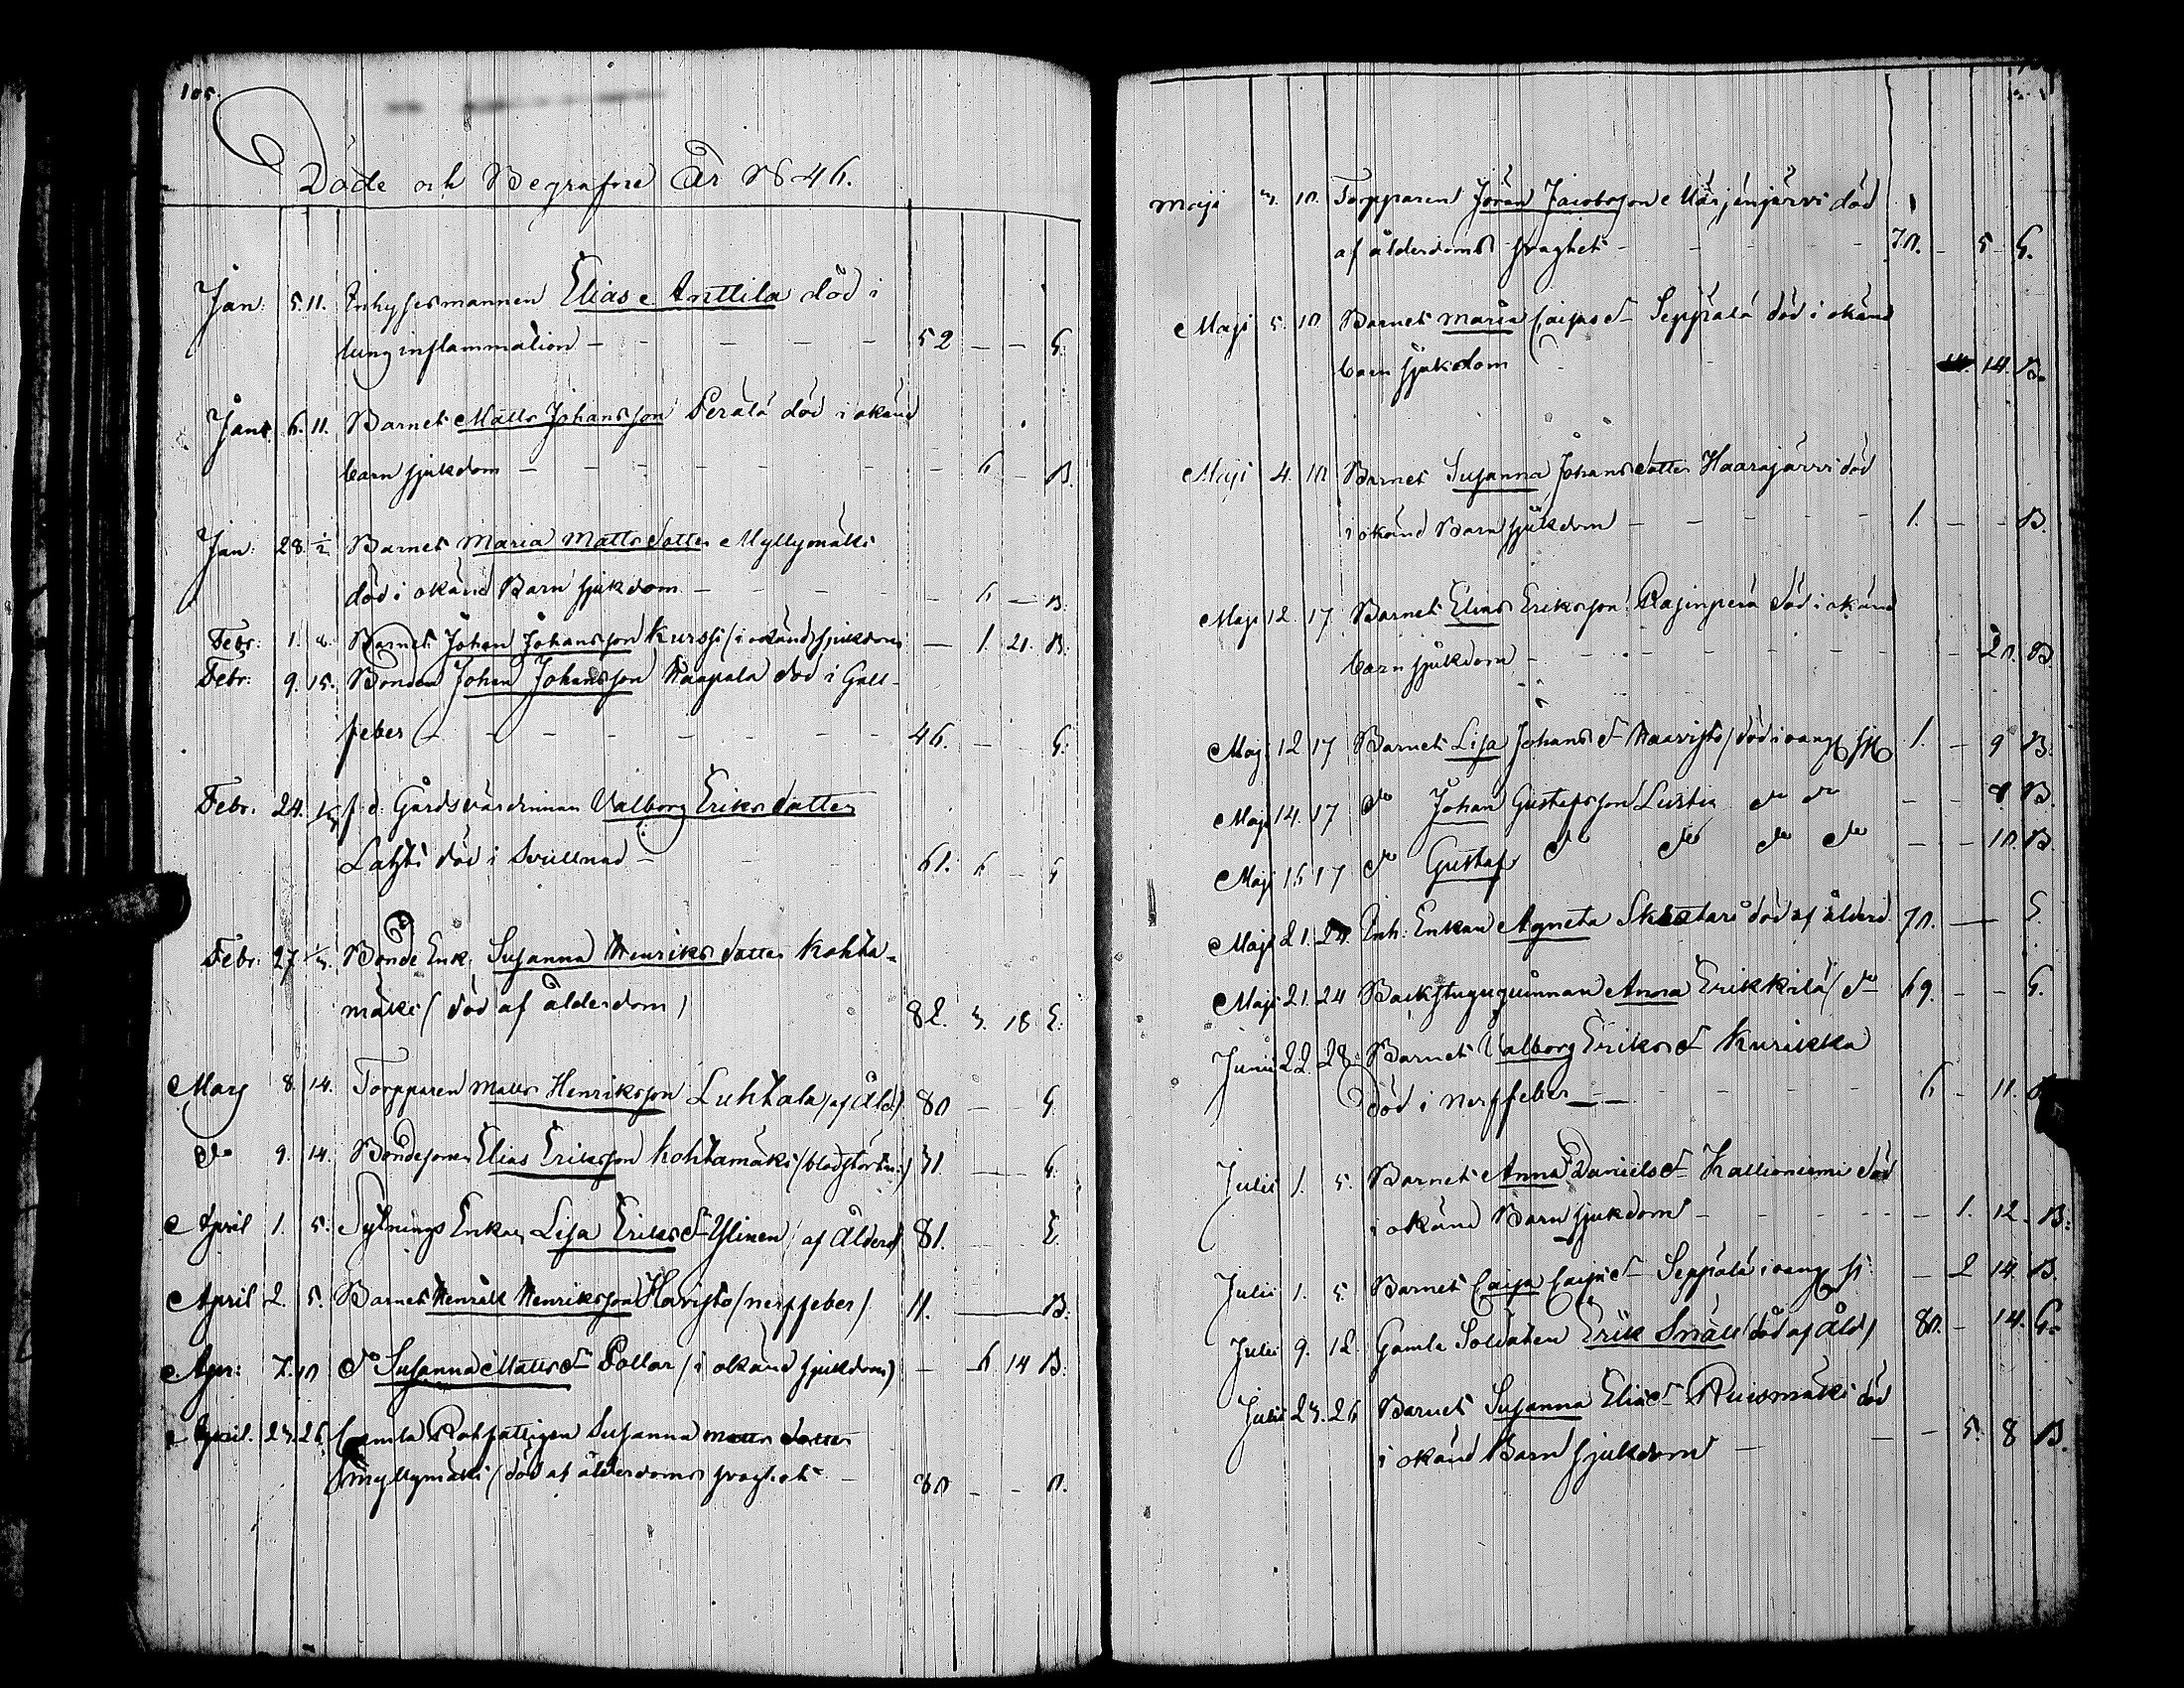 105.
Döde och Begrafne År 1846.
Jan: 5. 11. Inhysesmannen Elias Anttila död i
lunginflammation - - - - - 52 - - G.
Jan: 6. 11. Barnet Matts Johansson Perälä död i okänd
barnsjukdom - - - - - - 6 - B.
Jan: 28. 1/2 Barnet Maria Mattsdotter Myllymäki
död i okänd Barnsjukdom - - - - 6 - B.
Febr: 1. 8. Barnet Johan Johansson Kurssi (i okänd sjukdom - 1. 21. B.
Febr: 9. 15. Bonden Johan Johansson Haapala död i Gall-
feber - - - - - - 46. - - G.
Febr. 24. f.d. Gårdsvärdinnan Valborg Eriksdotter
Lahti död i Svullnad - - - 61. 6 - G
Febr: 27. 1/3. Bonde Enk. Susanna Henriksdotter Kohta-
mäki (död af ålderdom) 82. 3. 18 E.
Mars 8. 14. Torpparen Matts Henriksson Luhtala (af Åld.) 80 - - G.
do 9. 14. Bondesonen Elias Eriksson Kohtamäki (blodstörtn:) 31. - - G.
April 1. 5. Sytnings Enkan Lisa Eriksd Ylinen (af Ålderd) 81. - - E.
April 2. 5. Barnet Henrik Henriksson Havisto (nerffeber) 11. B.
Apr: 7. 10 do Susanna Mattsd Pollar (i okänd sjukdom) - 6 14 B.
April. 23. 26. Gamla Rotfattigen Susanna Mattsdotter
Myllymäki (död af ålderdoms svaghet - 80 - -
Maji 3. 10. Torpparen Jöran Jacobsson Märjenjärvi död
af ålderdoms svaghet - - - - 70. - 5 - G.
Maji 5. 10 Barnet Maria Caisasd Seppälä död i okänd
barnsjukdom - - 14. B.
Maji 4. 10 Barnet Susanna Johansdotter Haarajärvi död
i okänd Barnsjukdom - - - - - 1. - - B.
Maji 12. 17 Barnet Elias Eriksson Rasinperä död i okänd
barnsjukdom - - - - - - - 20. B.
Maji 12 17 Barnet Lisa Johansd Haavisto (död i okänd sj 1. - 9 B.
Maji 14. 17 do Johan Gustafsson Lustig do do - - 8 B.
Maji 16 17 do Gustaf do do do do - - 10. B.
Maji 21. 24. Inh: Enkan Agneta död af ålderd. 70. - E.
Maji 21. 24 Backstuguquinnan Anna Erikkilä (do 69. - - G.
Junii 22. 28. Barnet Valborg Eriksd Kurikka
död i nerffeber - - - - - 6 - 11.
Julii 1. 5. Barnet Anna Danielsd Kallioniemi död
i okänd Barnsjukdom - - - - - - 1. 12. B.
Julii 1. 5 Barnet Caisa Caisasd Seppälä i okänd sj: - 2 14. B.
Julii 9. 12. Gamla Soldaten Erik Snäll (död af Åld) 80. - 14. G.
Julii 23. 26 Barnet Susanna Eliasd Ruismäki död
i okänd Barnsjukdom - - - 5. 8 B.